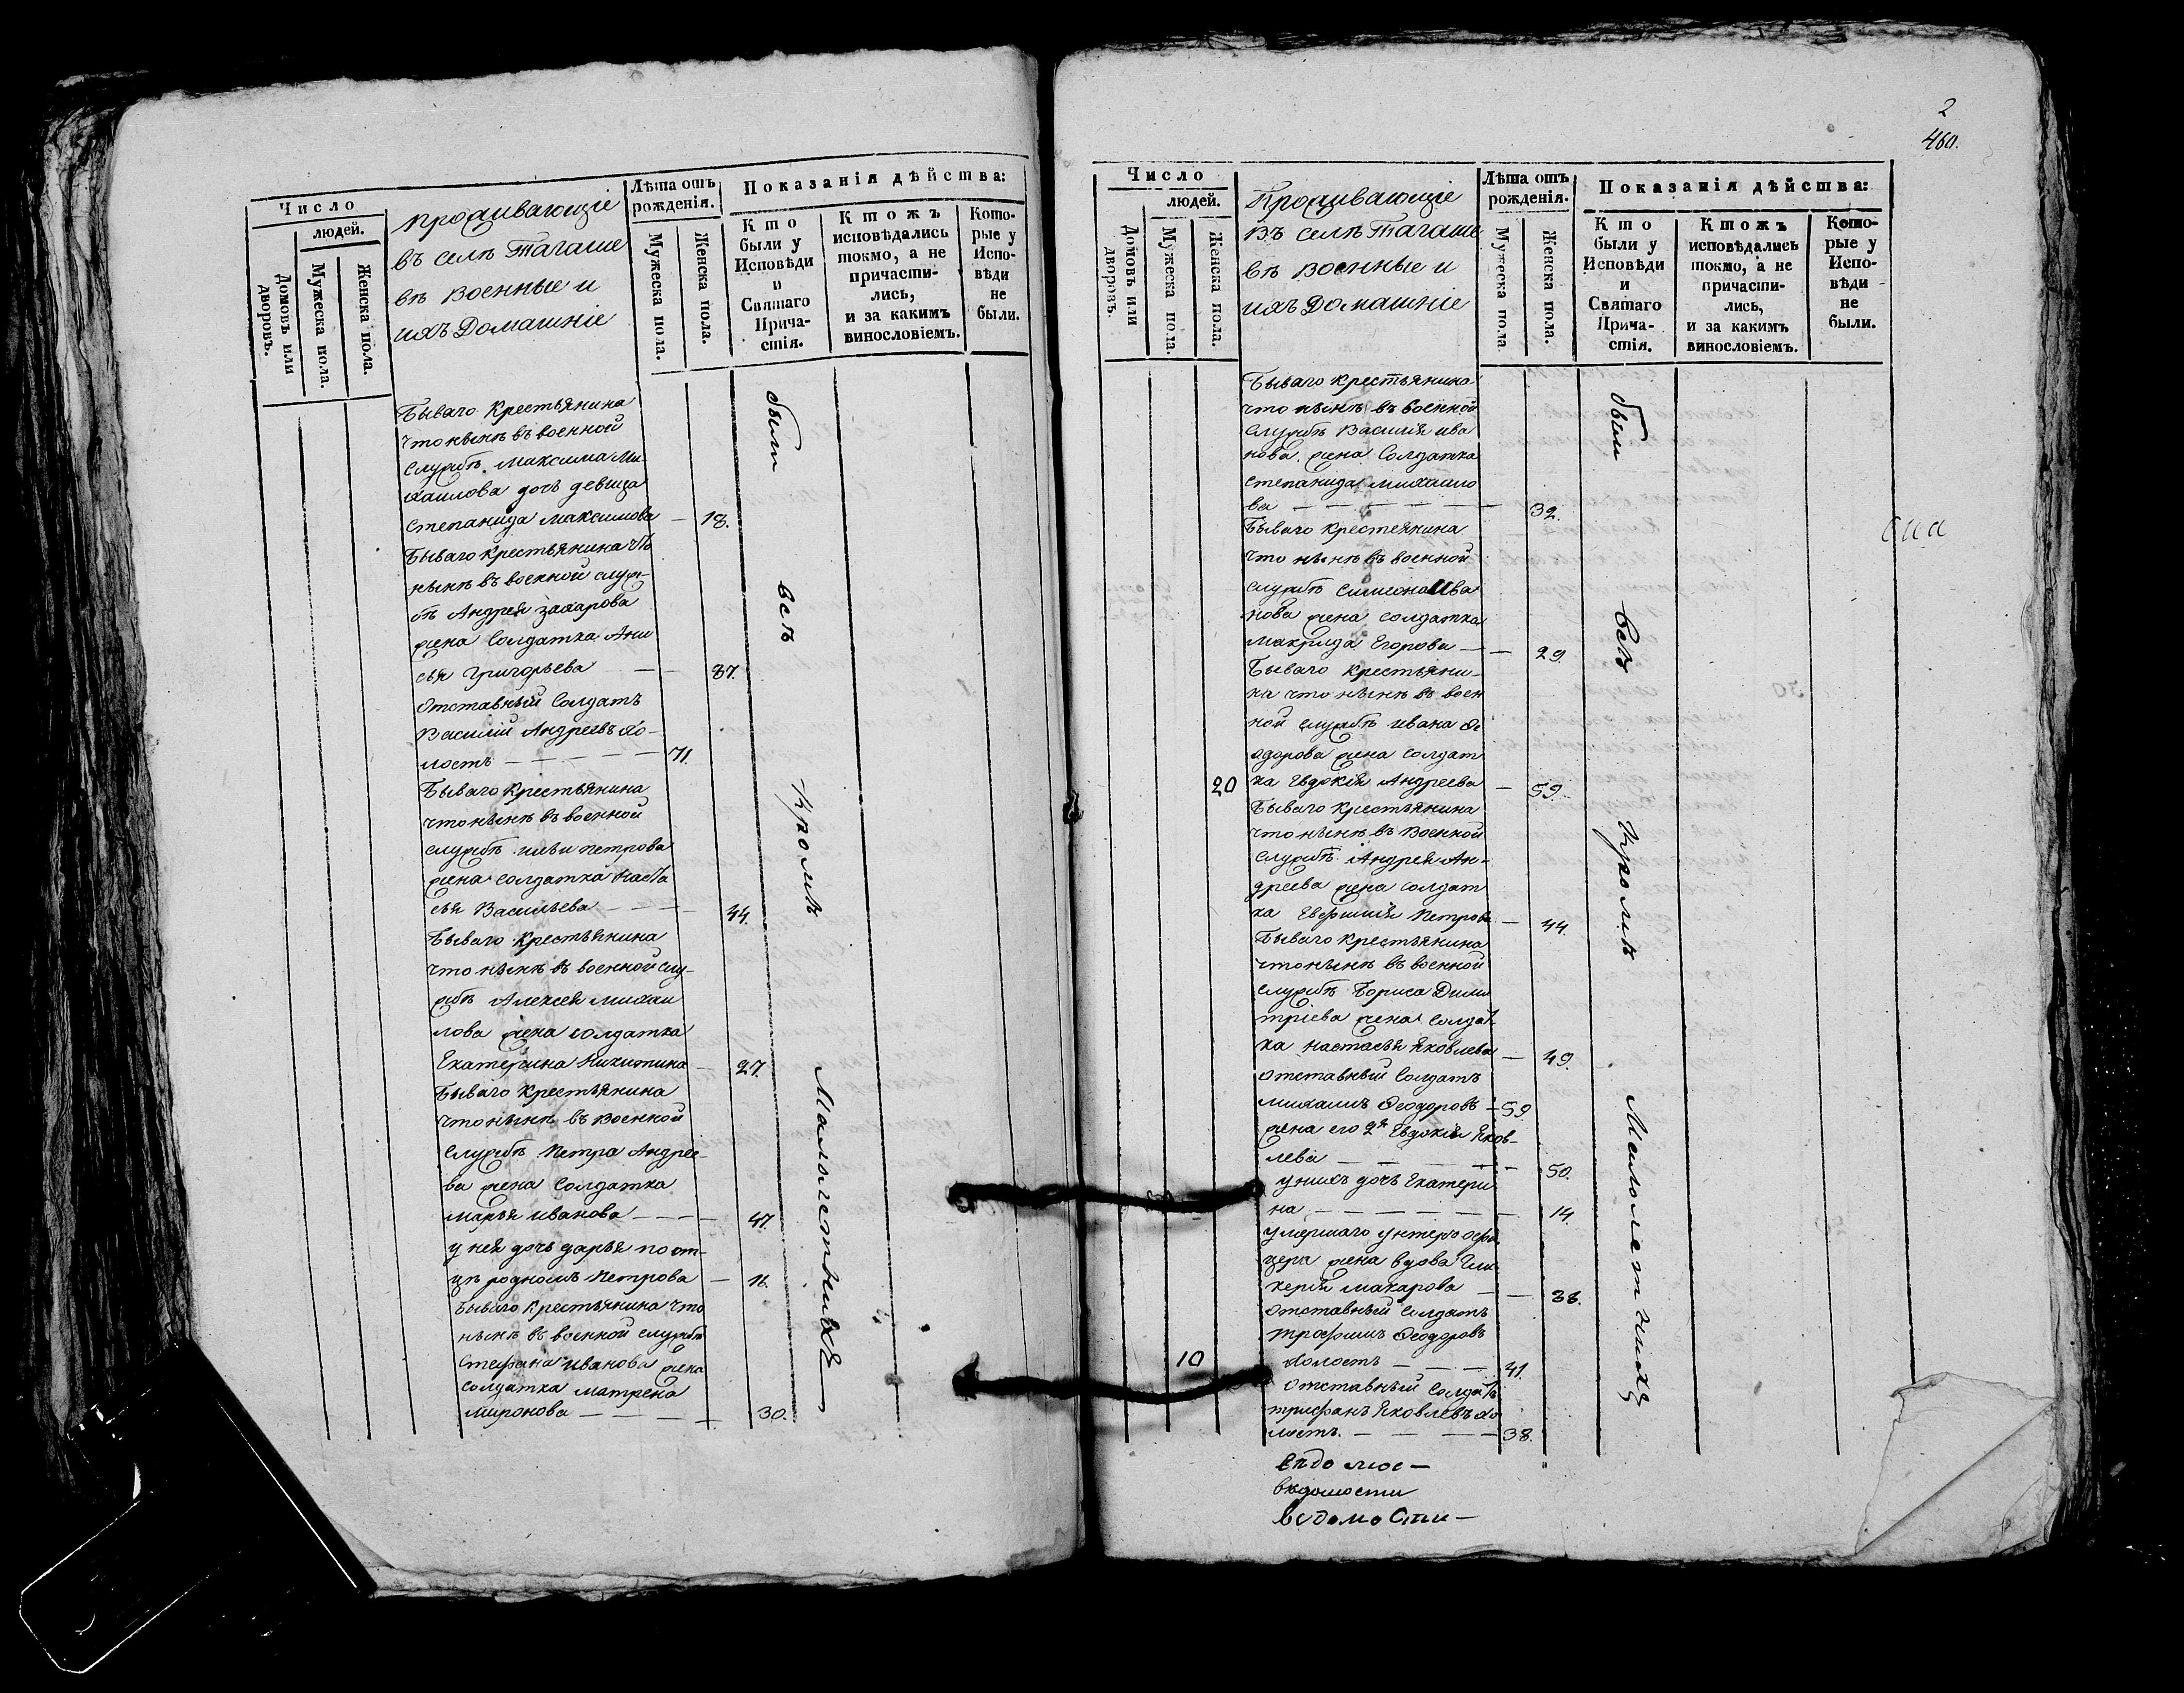 Число
людей.
Домовъ или дворовъ.
Мужеска пола.
Женска пола.
Проживающіе
въ селѣ Тагаше
въ военные и
ихъ Домашніе
Лѣта отъ
рожденія.
Мужеска пола.
Женска пола.
Показанія дѣйства:
Кто
были у
Исповѣди
и
Святаго
Прича-
стія.
Ктожъ
исповѣдались
токмо, а не
причасти-
лись,
и за какимъ
винословіемъ.
Кото-
рые у
Испо-
вѣди
не
были.
Бываго Крестьянина
что нынѣ въ военной
Службѣ Максима Ми
хаилова дочь девица
Степанида Максимова — 18.
Бываго Крестьянина что
нынѣ въ военной служ-
бѣ Андрея Захарова
жена Солдатка Ани
сья Григорьева — — 37.
Отставный Солдатъ
Василій Андреевъ хо-
лостъ — — — — 71.
Бываго Крестьянина
что нынѣ въ военной
службѣ Ильи Петрова
жена солдатка Наста
сья Васильева — — — 44.
Бываго Крестьянина
что нынѣ въ военной слу-
жбѣ Алексея Михаи
лова жена солдатка
Екатерина Никитина — 27.
Бываго Крестьянина
что нынѣ въ военной
Службѣ Петра Андрее-
ва жена Солдатка
Марья Иванова — — — 47.
у нея дочь Дарья по от-
цѣ родномъ Петрова — 11.
Бываго Крестьянина что
нынѣ въ военной службѣ
Стефана Иванова жена
Солдатка Матрена
Миронова — — — — 30.
были всѣ кромѣ Малолетнихъ
2
460.
Число
людей.
Домовъ или дворовъ.
Мужеска пола.
Женска пола.
Проживающіе
въ селѣ Тагаше
въ военные и
ихъ Домашніе
Лѣта отъ
рожденія.
Мужеска пола.
Женска пола.
Показанія дѣйства:
Кто
были у
Исповѣди
и
Святаго
Прича-
стія.
Ктожъ
исповѣдались
токмо, а не
причасти-
лись,
и за какимъ
винословіемъ.
Кото-
рые у
Испо-
вѣди
не
были.
Бываго Крестьянина
что нынѣ въ военной
Службѣ Василія Ива
нова жена Солдатка
Степанида Михаило
ва — — — — — — 32.
Бываго Крестьянина
что нынѣ въ военной
службѣ Симеона Ива
нова жена солдатка
Макрида Егорова — — 29.
Бываго Крестьяни-
на что нынѣ въ воен
ной службѣ Ивана Ѳе
одорова жена солдат
20 ка Евдокія Андреева — 59.
Бываго Крестьянина
что нынѣ въ военной
Службѣ Андрея Ан-
дреева жена солдат
ка Евфимія Петрова — 44.
Бываго Крестьянина
что нынѣ въ военной
службѣ Бориса Дими
тріева жена Солдат
ка Настасья Яковлева — 49.
Отставный Солдатъ
Михаилъ Ѳеодоровъ — 59
жена его 2я Евдокія Яков-
лева — — — — — 50.
у нихъ дочь Екатери
на — — — — — — 14.
умершаго унтеръ офи
цера жена вдова Гли
керія Макарова — — 38.
Отставный Солдатъ
Трофимъ Ѳеодоровъ
10 холостъ — — — 41.
Отставный Солдатъ
Трифанъ Яковлевъ хо
лостъ. — — — — 38.
были всѣ кромѣ Малолетнихъ
ведомос —
вѣдомости
ведомости —